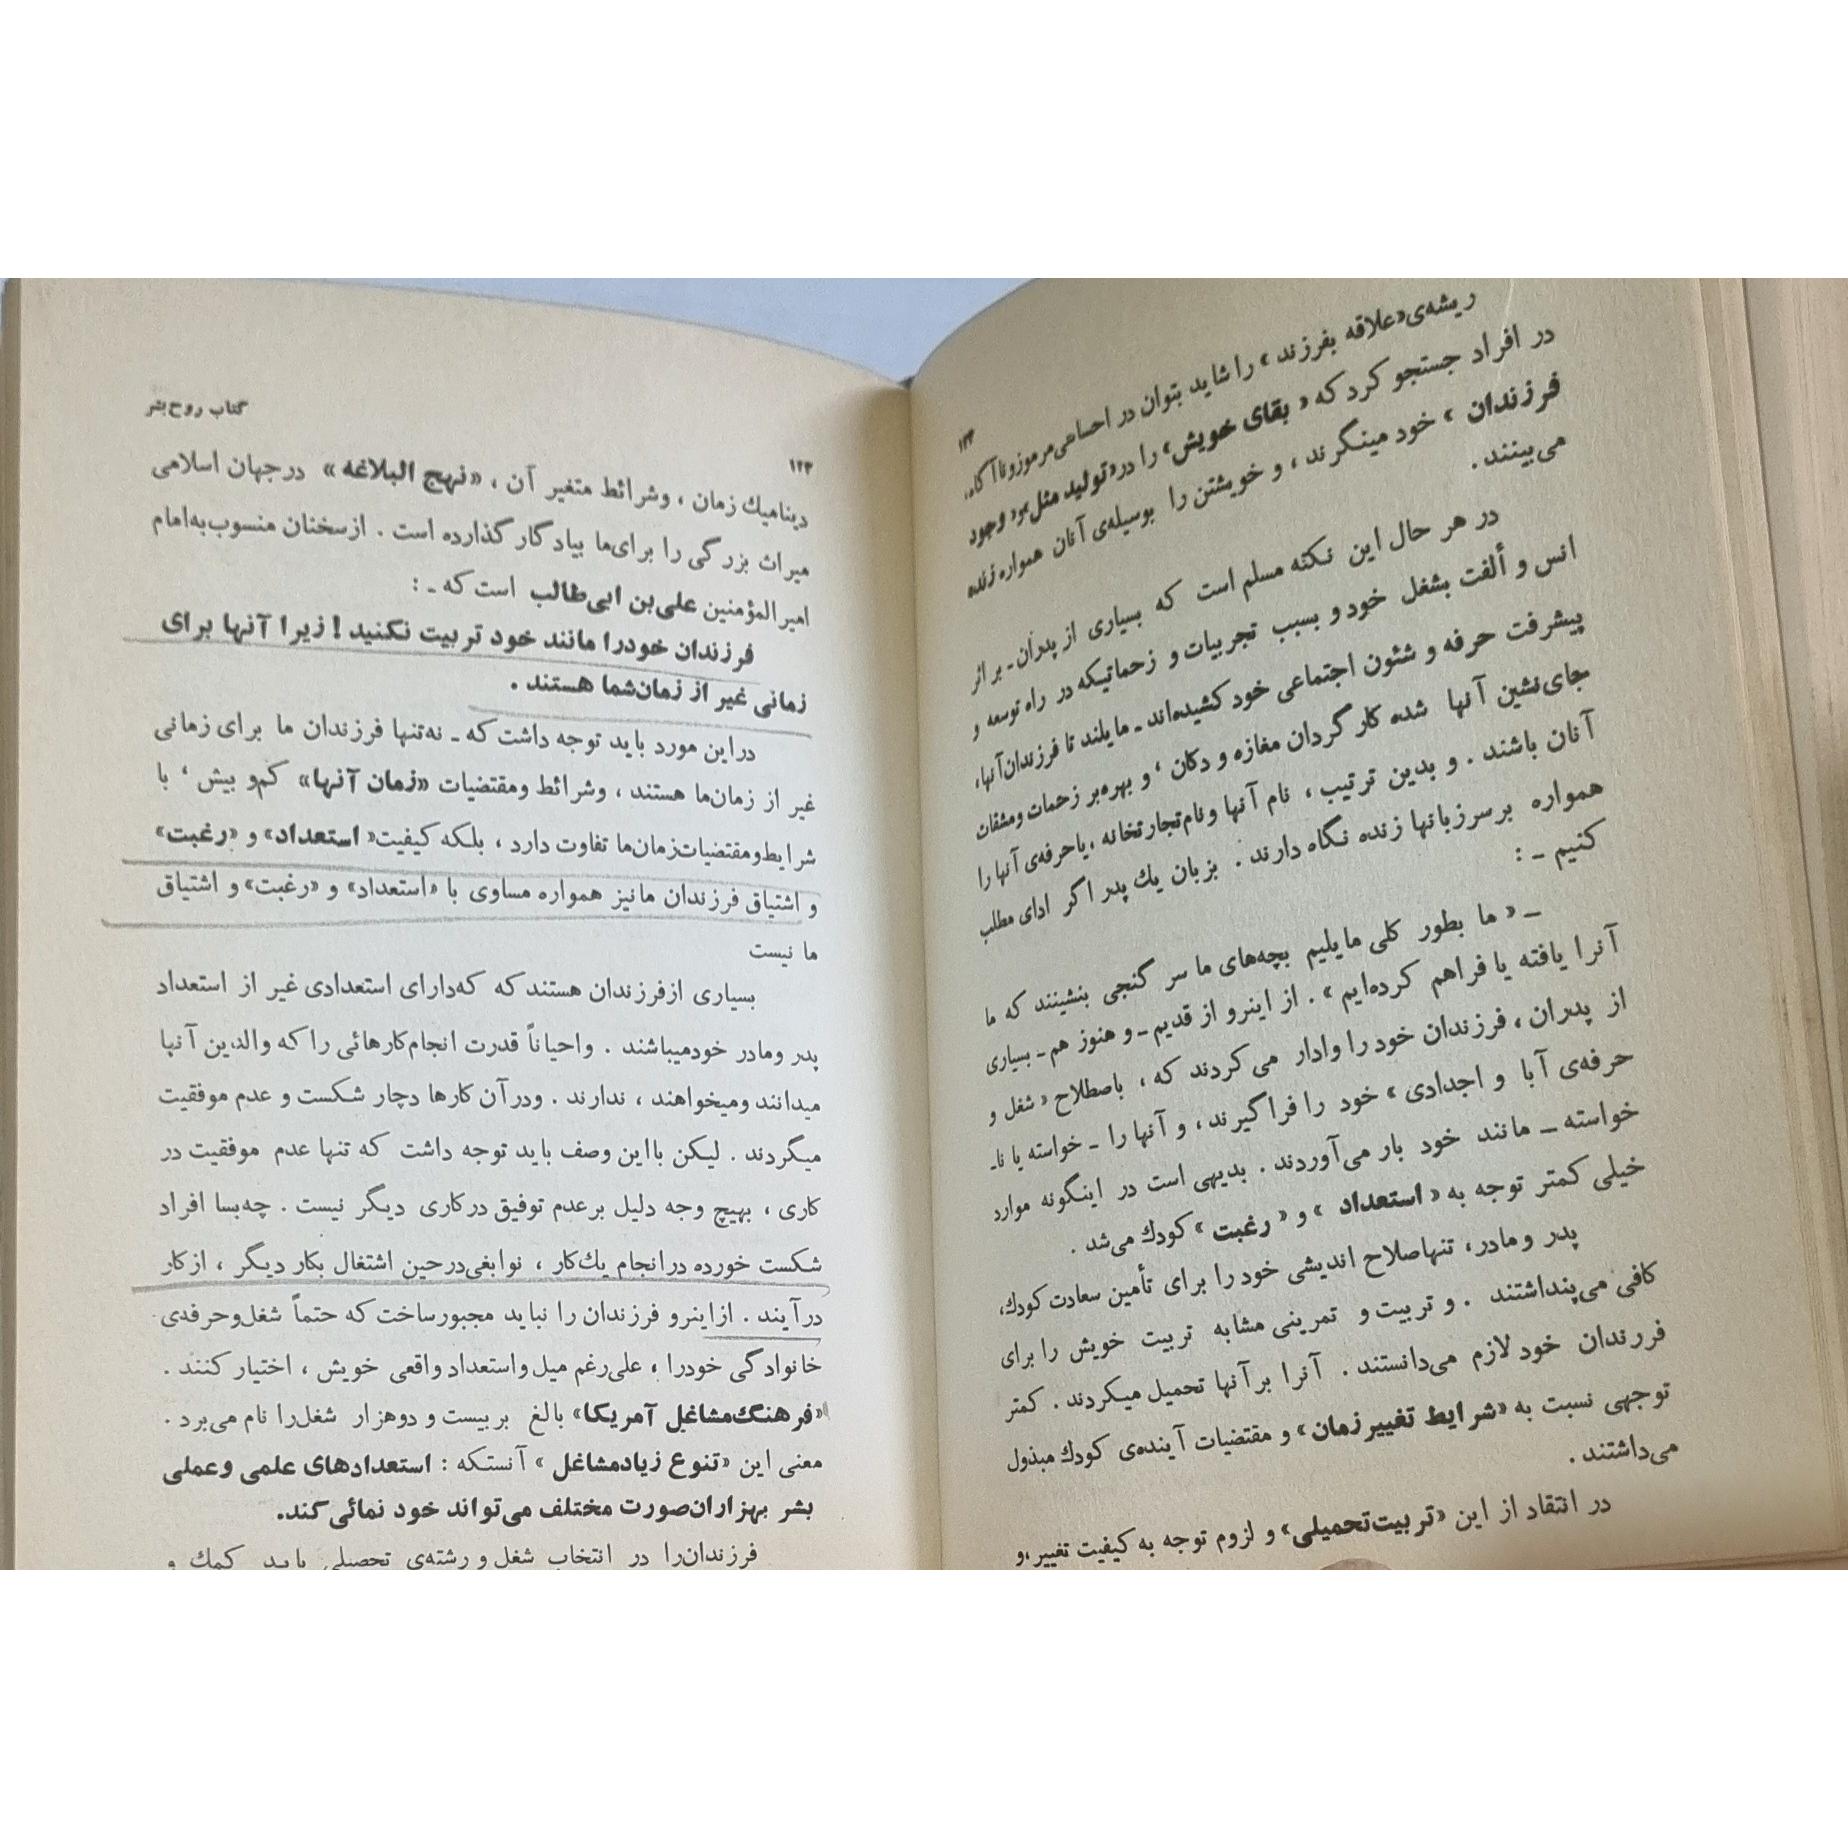 ریشه‌ی «علاقه بفرزند» را شاید بتوان در احساسی مرموز و ناآگاه،
در افراد جستجو کرد که «بقای خویش» را در «تولید مثل» و وجود
فرزندان» خود مینگرند، و خویشتن را بوسیله‌ی آنان همواره زنده
می‌بینند.
در هر حال این نکته مسلم است که بسیاری از پدران ـ بر اثر
انس و ألفت بشغل خود و بسبب تجربیات و زحماتیکه در راه توسعه و
پیشرفت حرفه و شئون اجتماعی خود کشیده‌اند ـ مایلند تا فرزندان آنها،
جای‌نشین آنها شده کارگردان مغازه و دکان، و بهره‌بر زحمات و مشقات
آنان باشند. و بدین ترتیب، نام آنها و نام تجارتخانه، یا حرفه‌ی آنها را
همواره بر سر زبانها زنده نگاه دارند. بزبان یك پدر اگر ادای مطلب
کنیم ـ :
ـ «ما بطور کلی مایلیم بچه‌های ما سر گنجی بنشینند که ما
آنرا یافته یا فراهم کرده‌ایم». از اینرو از قدیم ـ و هنوز هم ـ بسیاری
از پدران، فرزندان خود را وادار می‌کردند که، باصطلاح «شغل و
حرفه‌ی آبا و اجدادی» خود را فراگیرند، و آنها را ـ خواسته یا نا-
خواسته ـ مانند خود بار می‌آوردند. بدیهی است در اینگونه موارد
خیلی کمتر توجه به «استعداد» و «رغبت» کودك می‌شد.
پدر و مادر، تنها صلاح اندیشی خود را برای تأمین سعادت کودك،
کافی می‌پنداشتند. و تربیت و تمرینی مشابه تربیت خویش را برای
فررندان خود لازم می‌دانستند. آنرا بر آنها تحمیل میکردند. کمتر
توجهی نسبت به «شرایط تغییر زمان» و مقتضیات آینده‌ی کودك مبذول
می‌داشتند.
در انتقاد از این «تربیت تحمیلی» و لزوم توجه به کیفیت تغییر، و
۱۲۳ کتاب روح بشر
دینامیك زمان، و شرائط متغیر آن، «نهج البلاغه» در جهان اسلامی
میراث بزرگی را برای ما بیادگار گذارده است. از سخنان منسوب به امام
امیرالمؤمنین علی‌بن ابی‌طالب است که ـ :
فرزندان خودرا مانند خود تربیت نکنید! زیرا آنها برای
زمانی غیر از زمان شما هستند.
در این مورد باید توجه داشت که ـ نه‌تنها فرزندان ما برای زمانی
غیر از زمان‌ما هستند، و شرائط و مقتضیات «زمان آنها» کم‌و بیش، با
شرایط و مقتضیات زمان‌ما تفاوت دارد، بلکه کیفیت «استعداد» و «رغبت»
و اشتیاق فرزندان ما نیز همواره مساوی با «استعداد» و «رغبت» و اشتیاق
ما نیست
بسیاری از فرزندان هستند که که‌دارای استعدادی غیر از استعداد
پدر و مادر خود میباشند. و احیاناً قدرت انجام کارهائی را که والدین آنها
میدانند و میخواهند، ندارند. و در آن کارها دچار شکست و عدم موفقیت
میگردند. لیکن با این وصف باید توجه داشت که تنها عدم موفقیت در
کاری، بهیچ وجه دلیل بر عدم توفیق در کاری دیگر نیست. چه‌بسا افراد
شکست خورده در انجام یك‌کار، نوابغی در حین اشتغال بکار دیگر، از کار
درآیند. از اینرو فرزندان را نباید مجبور ساخت که حتماً شغل و حرفه‌ی
خانوادگی خودرا، علی‌رغم میل و استعداد واقعی خویش، اختیار کنند.
«فرهنگ مشاغل آمریکا» بالغ بربیست و دوهزار شغل‌را نام می‌برد.
معنی این «تنوع زیاد مشاغل» آنستکه: استعدادهای علمی و عملی
بشر بهزاران صورت مختلف می‌تواند خود نمائی کند.
فرزندان‌را در انتخاب شغل و رشته‌ی تحصیلی باید کمك و